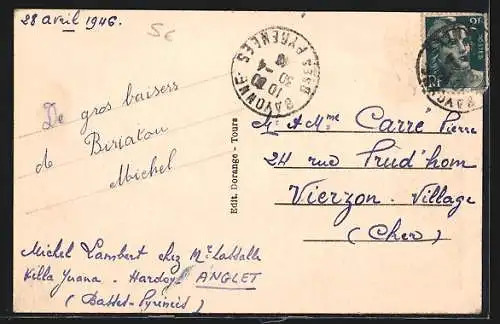 28 avril 1946.
5€
De gros baisers
de Biriatou
Michel
Michel Lambert chez Mr Lassalle
Villa Juana - Hardoy ANGLET
(Basses-Pyrineis)
Edit. Dorange - Tours
BAYONNE
10 30
30 -4
BSES PYRENEES
2F
POSTES
M. et Mme Carré Pierre
24 rue Prud'hom
Vierzon. Village
(Cher)